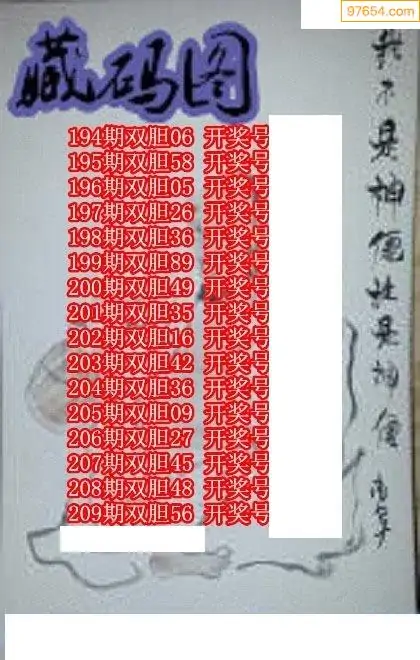 97654.com
藏码图
194期双胆06 开奖号
195期双胆58 开奖号
196期双胆05 开奖号
197期双胆26 开奖号
198期双胆36 开奖号
199期双胆89 开奖号
200期双胆49 开奖号
201期双胆35 开奖号
202期双胆16 开奖号
203期双胆42 开奖号
204期双胆36 开奖号
205期双胆09 开奖号
206期双胆27 开奖号
207期双胆45 开奖号
208期双胆48 开奖号
209期双胆56 开奖号
我不是神但也是神